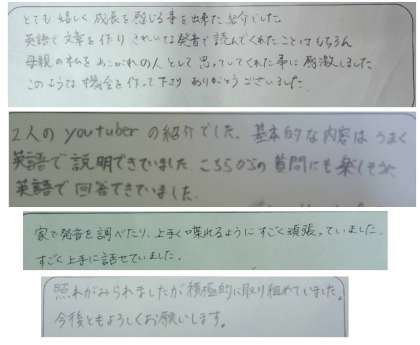 とても嬉しく成長を感じる事を出来た紹介でした。
英語で文章を作り きれいな発音で読んでくれたことはもちろん
母親の私をあこがれの人として思っていてくれた事に感激しました。
このような機会を作って下さり ありがとうございました。
2人の youtuber の紹介でした。基本的な内容はうまく
英語で説明できていました こちらからの質問にも楽しそうに
英語で回答できていました。
家で発音を調べたり、上手く喋れるようにすごく頑張っていました。
すごく上手に話せていました。
照れがみられましたが積極的に取り組めていました。
今後ともよろしくお願いします。